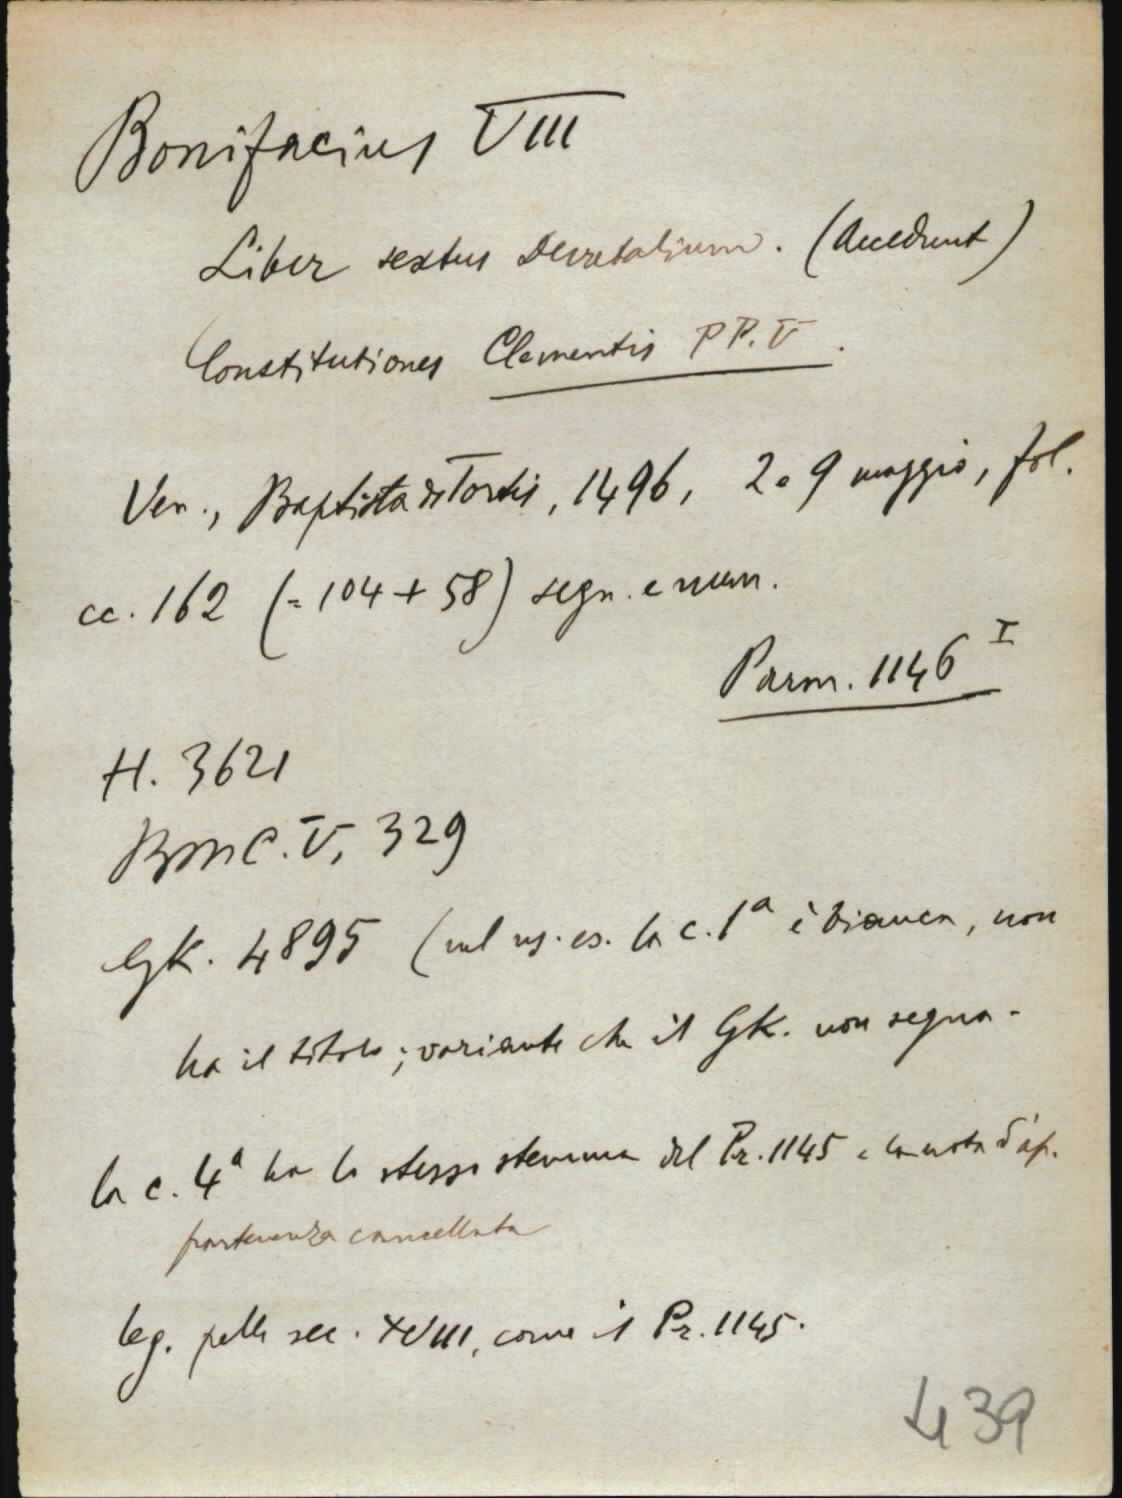 Bonifacius VIII
Liber sextus Decretalium. (Accedunt)
Constitutiones Clementis PP. V.
Ven., Baptista de Tortis, 1496, 2 e 9 maggio, fol.
cc. 162 (= 104 + 58) segn. e num.
Parm. 1146 I
H. 3621
BMC. V, 329
GK. 4895 (nel ns. es. la c. 1a è bianca, non
ha il titolo; variante che il GK. non segna-
la c. 4a ha lo stesso stemma del Pr. 1145 e la nota d'ap.
partenenza cancellata
leg. pelle sec. XVIII, come il Pr. 1145.
439